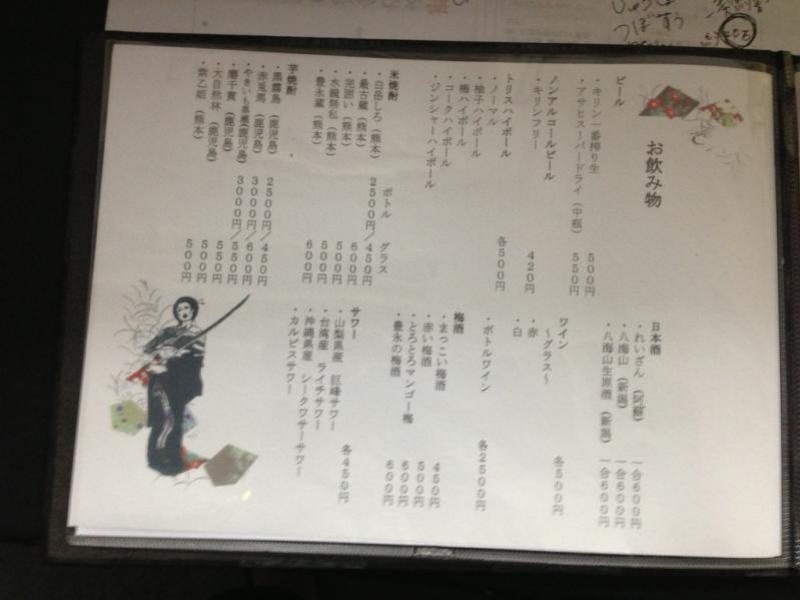 お飲み物
ビール
・キリン一番搾り生 500円
・アサヒスーパードライ（中瓶） 550円
ノンアルコールビール
・キリンフリー 420円
トリスハイボール
・ノーマル 各500円
・柚子ハイボール
・梅ハイボール
・コークハイボール
・ジンジャーハイボール
米焼酎 ボトル グラス
・白岳しろ（熊本） 2500円／450円
・最古蔵（熊本） 600円
・完囲い（熊本） 500円
・水鏡無私（熊本） 500円
・豊永蔵（熊本） 600円
芋焼酎
・黒霧島（鹿児島） 2500円／450円
・赤兎馬（鹿児島） 3000円／600円
・やきいも黒瀬（鹿児島） 3000円／550円
・蘭千貫（鹿児島） 550円
・大自然林（鹿児島） 500円
・紫乙姫（熊本） 500円
日本酒
・れいざん（阿蘇） 一合600円
・八海山（新潟） 一合600円
・八海山生原酒（新潟） 一合600円
ワイン
～グラス～
・赤 各500円
・白
・ボトルワイン 各2500円
梅酒
・まっこい梅酒 450円
・赤い梅酒 500円
・とろとろマンゴー梅 600円
・豊永の梅酒 600円
サワー
・山梨県産 巨峰サワー 各450円
・台湾産 ライチサワー
・沖縄県産 シークワサーサワー
・カルピスサワー
つぼ